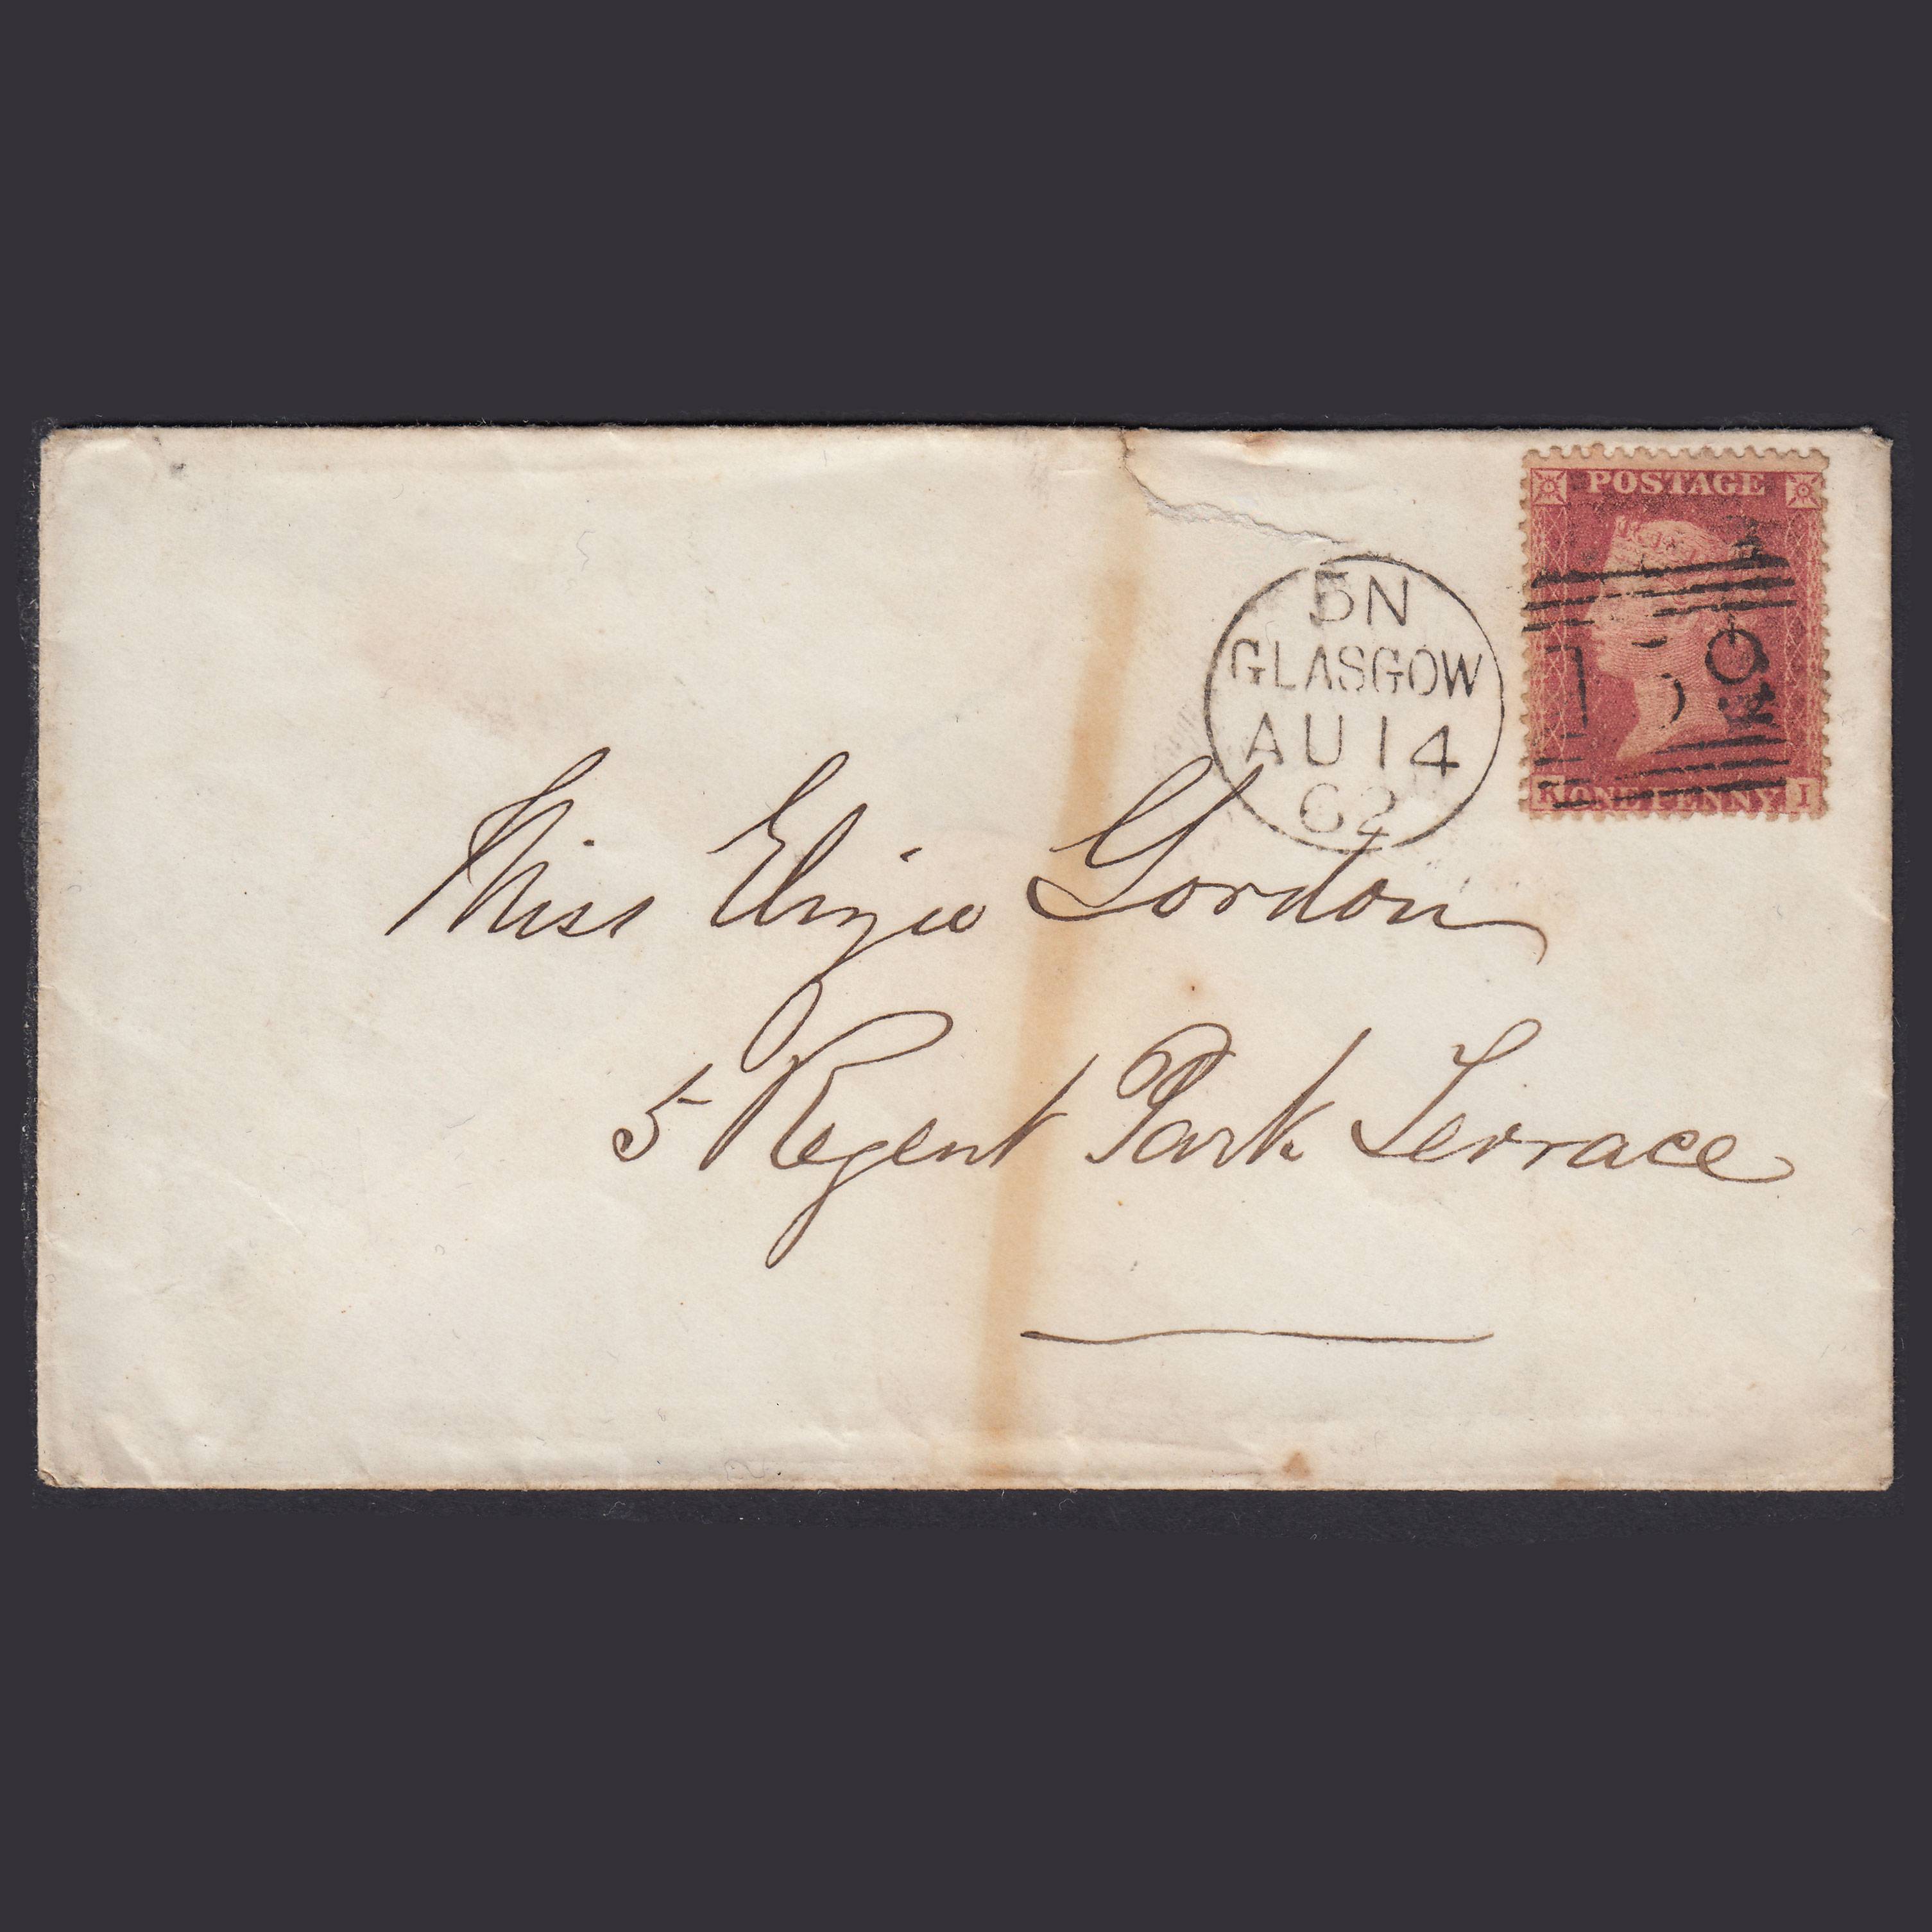 POSTAGE
5N
GLASGOW
AU 14
62
159
K ONE PENNY I
Miss Gordon
5 Regent Park Terrace